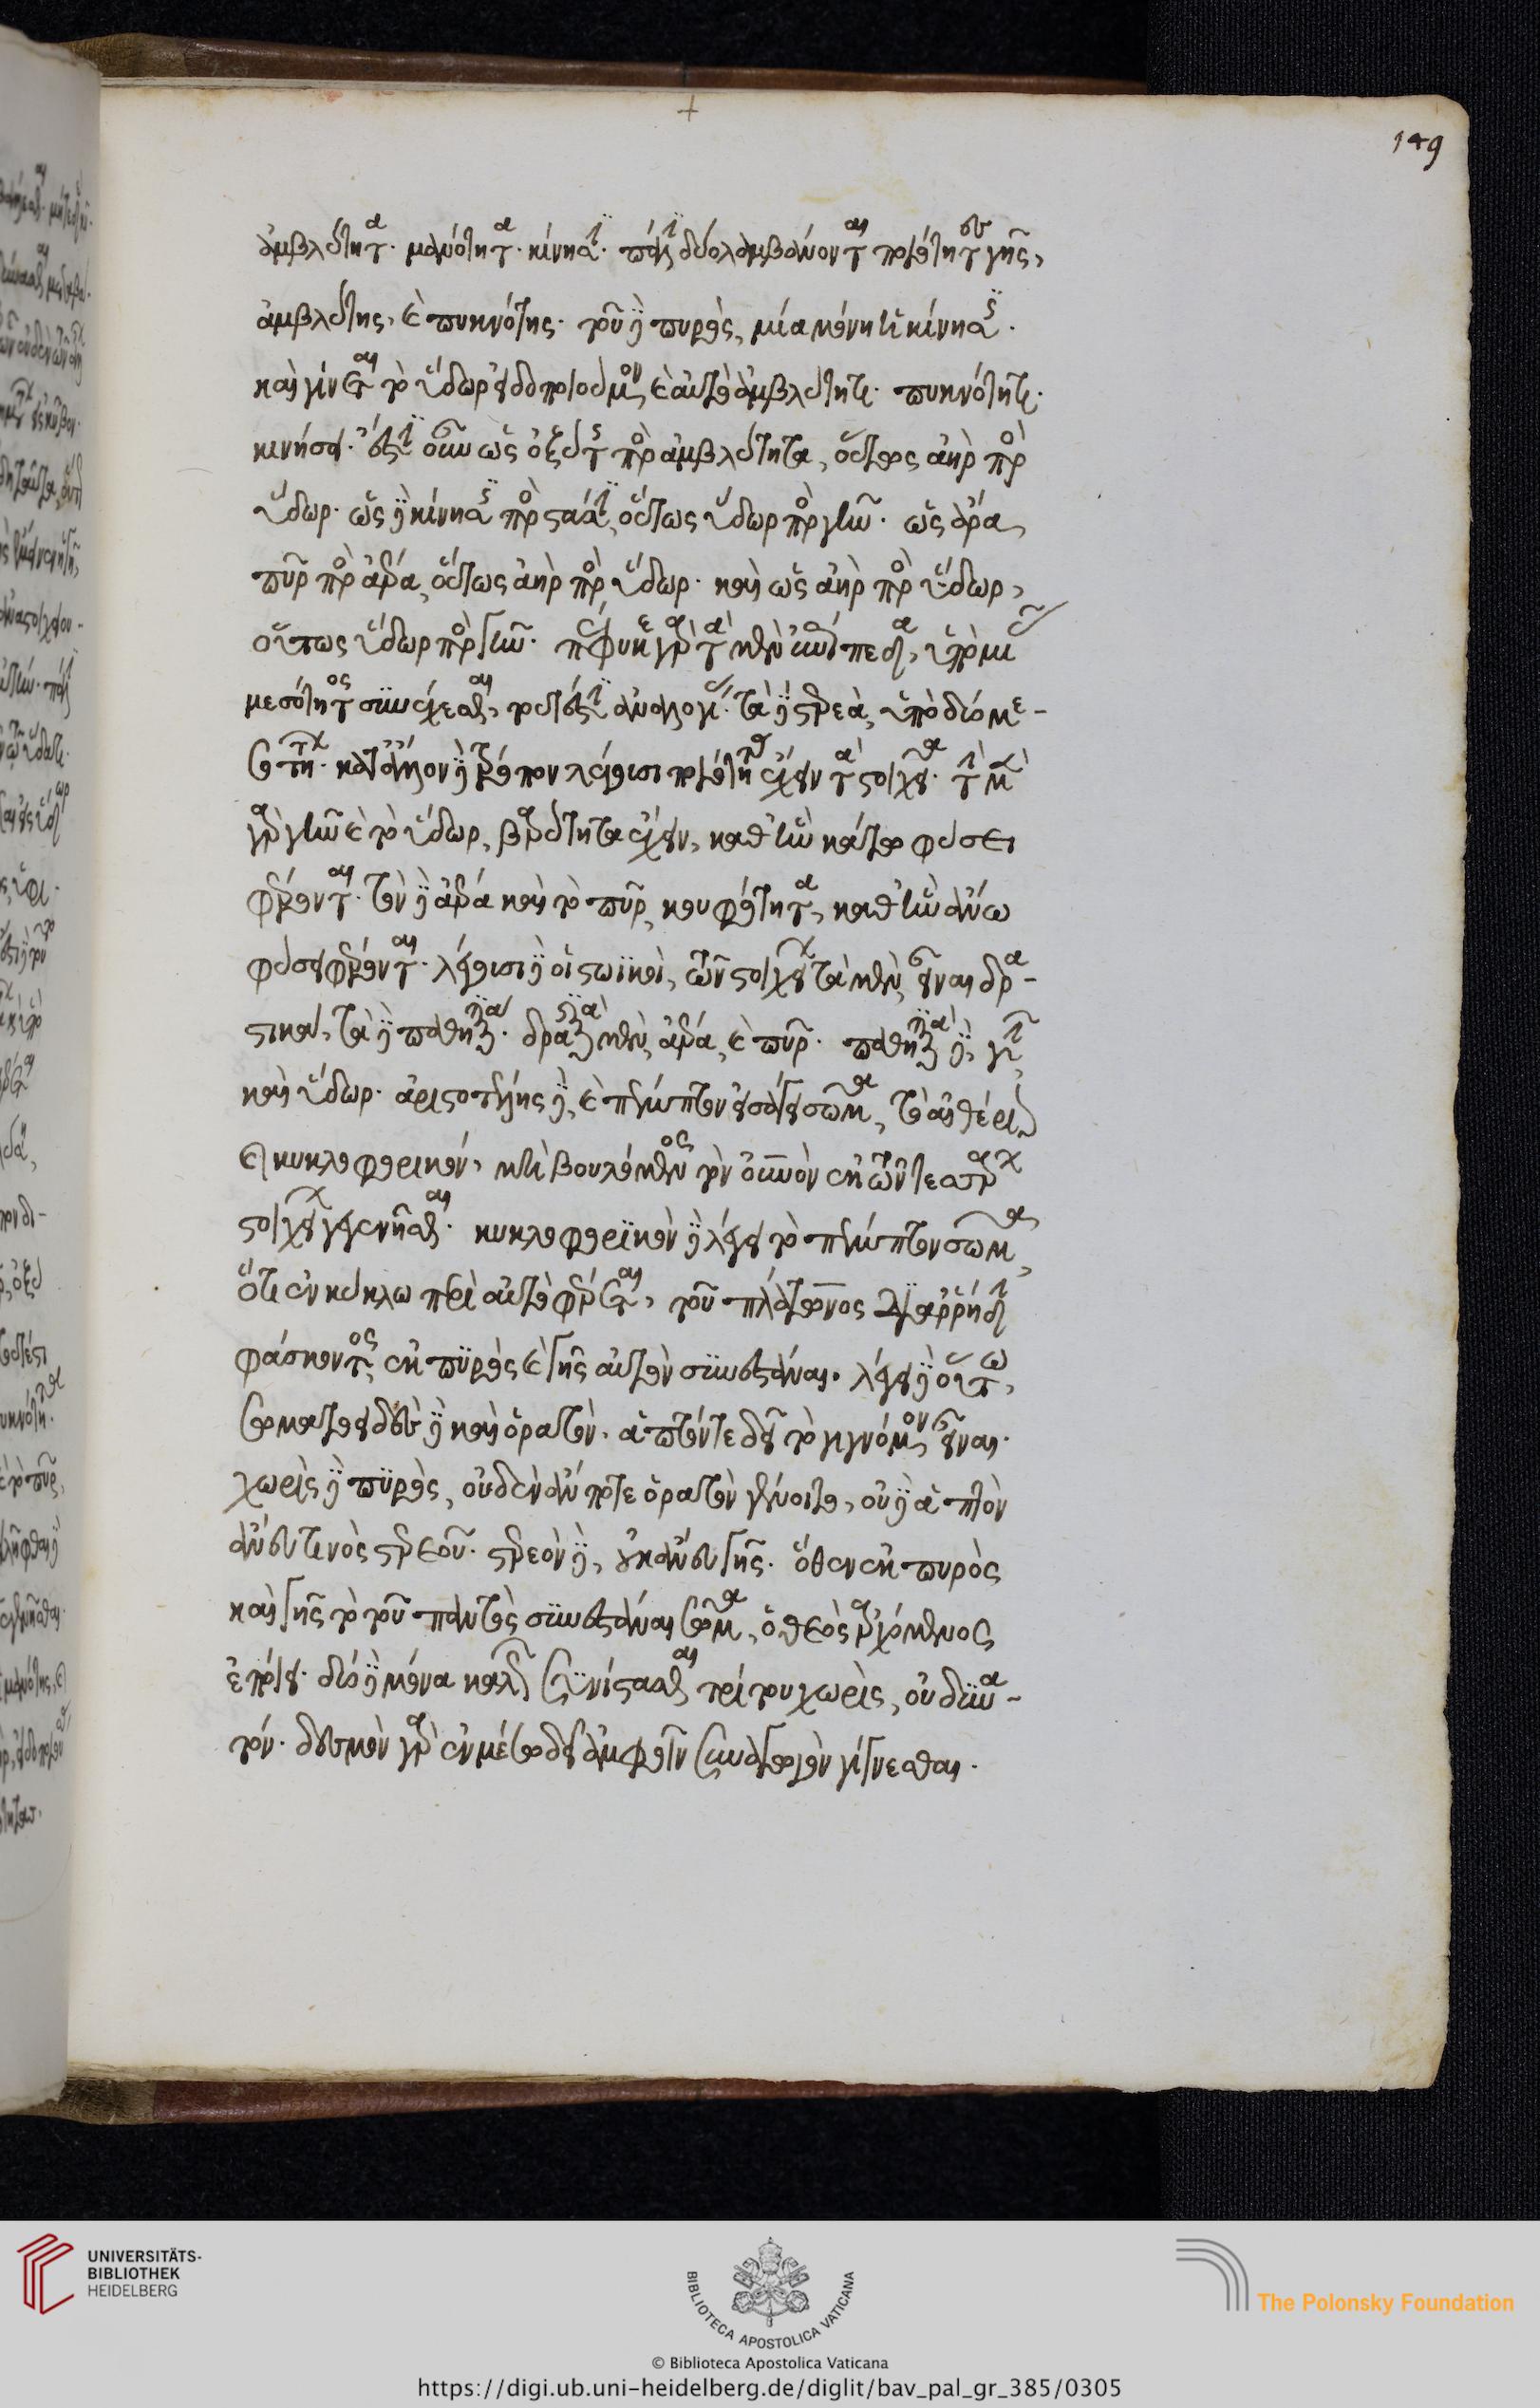 ἀμβλύτητα· μανότητα· κίνησιν· πάλιν δύο λαμβάνονται ποιότητες γῆς,
ἀμβλύτης, καὶ πυκνότης· τοῦ δὲ πυρὸς, μία μόνη ἡ κίνησις·
καὶ γίνεται τὸ ὕδωρ εἰδοποιούμενον, καὶ αὐτὸ ἀμβλύτητι· πυκνότητι·
κινήσει· ἔστιν οὖν ὡς ὀξύτης πρὸς ἀμβλύτητα, οὕτως ἀὴρ πρὸς
ὕδωρ· ὡς δὲ κίνησις πρὸς στάσιν, οὕτως ὕδωρ πρὸς γῆν· ὡς ἄρα,
πῦρ πρὸς ἀέρα, οὕτως ἀὴρ πρὸς ὕδωρ· καὶ ὡς ἀὴρ πρὸς ὕδωρ,
οὕτως ὕδωρ πρὸς γῆν· πέφυκε γὰρ τὰ μὲν ἐπίπεδα, ὑπὸ μιᾶς
μεσότητος συνέχεσθαι, τουτέστιν ἀναλογίας· τὰ δὲ στερεὰ, ὑπὸ δύο με-
σοτήτων· κατ' ἄλλον δὲ τρόπον λέγουσι ποιότητας ἔχειν τὰ στοιχεῖα· τὴν μὲν
γὰρ γῆν καὶ τὸ ὕδωρ, βαρύτητα ἔχειν, καθ' ἣν κάτω φύσει
φέρονται· τὸν δὲ ἀέρα καὶ τὸ πῦρ, κουφότητα, καθ' ἣν ἄνω
φύσει φέρονται· λέγουσι δὲ οἱ στωϊκοὶ, τῶν στοιχείων τὰ μὲν εἶναι δρα-
στικά, τὰ δὲ παθητικά· δραστικὰ μὲν ἀέρα, καὶ πῦρ· παθητικὰ δὲ, γῆν
καὶ ὕδωρ· ἀριστοτέλης δὲ, καὶ πέμπτον εἰσάγει σῶμα, τὸ αἰθέριον
καὶ κυκλοφορικόν, μὴ βουλόμενος τὸν οὐρανὸν ἐκ τῶν τεσσάρων
στοιχείων γεγενῆσθαι· κυκλοφορϊκὸν δὲ λέγει τὸ πέμπτον σῶμα,
ὅτι ἐν κύκλω περὶ αὐτὸ φέρεται, τοῦ πλάτωνος διαρρήδην
φάσκοντος, ἐκ πϋρὸς καὶ γῆς αὐτὸν συνεστάναι· λέγει δὲ οὕτω,
σωματοειδὲς δὲ καὶ ὁρατὸν, ἁπτόν τε δεῖ τὸ γιγνόμενον εἶναι·
χωρὶς δὲ πϋρὸς, οὐδὲν ἄν ποτε ὁρατὸν γένοιτο, οὐδὲ ἁπτὸν
ἄνευ τινὸς στερεοῦ· στερεὸν δὲ, οὐκ ἄνευ γῆς· ὅθεν ἐκ πυρὸς
καὶ γῆς τὸ τοῦ παντὸς συνεστάναι σῶμα, ὁ θεὸς ἀρχόμενος
ἐποίει· δύο δὲ μόνα καλῶς συνίστασθαι τρίτου χωρὶς, οὐ δυνα-
τόν· δεσμὸν γὰρ ἐν μέσω δεῖ ἀμφοῖν συναγωγὸν γίγνεσθαι·
149
UNIVERSITÄTS-
BIBLIOTHEK
HEIDELBERG
BIBLIOTECA APOSTOLICA VATICANA
The Polonsky Foundation
© Biblioteca Apostolica Vaticana
https://digi.ub.uni-heidelberg.de/diglit/bav_pal_gr_385/0305